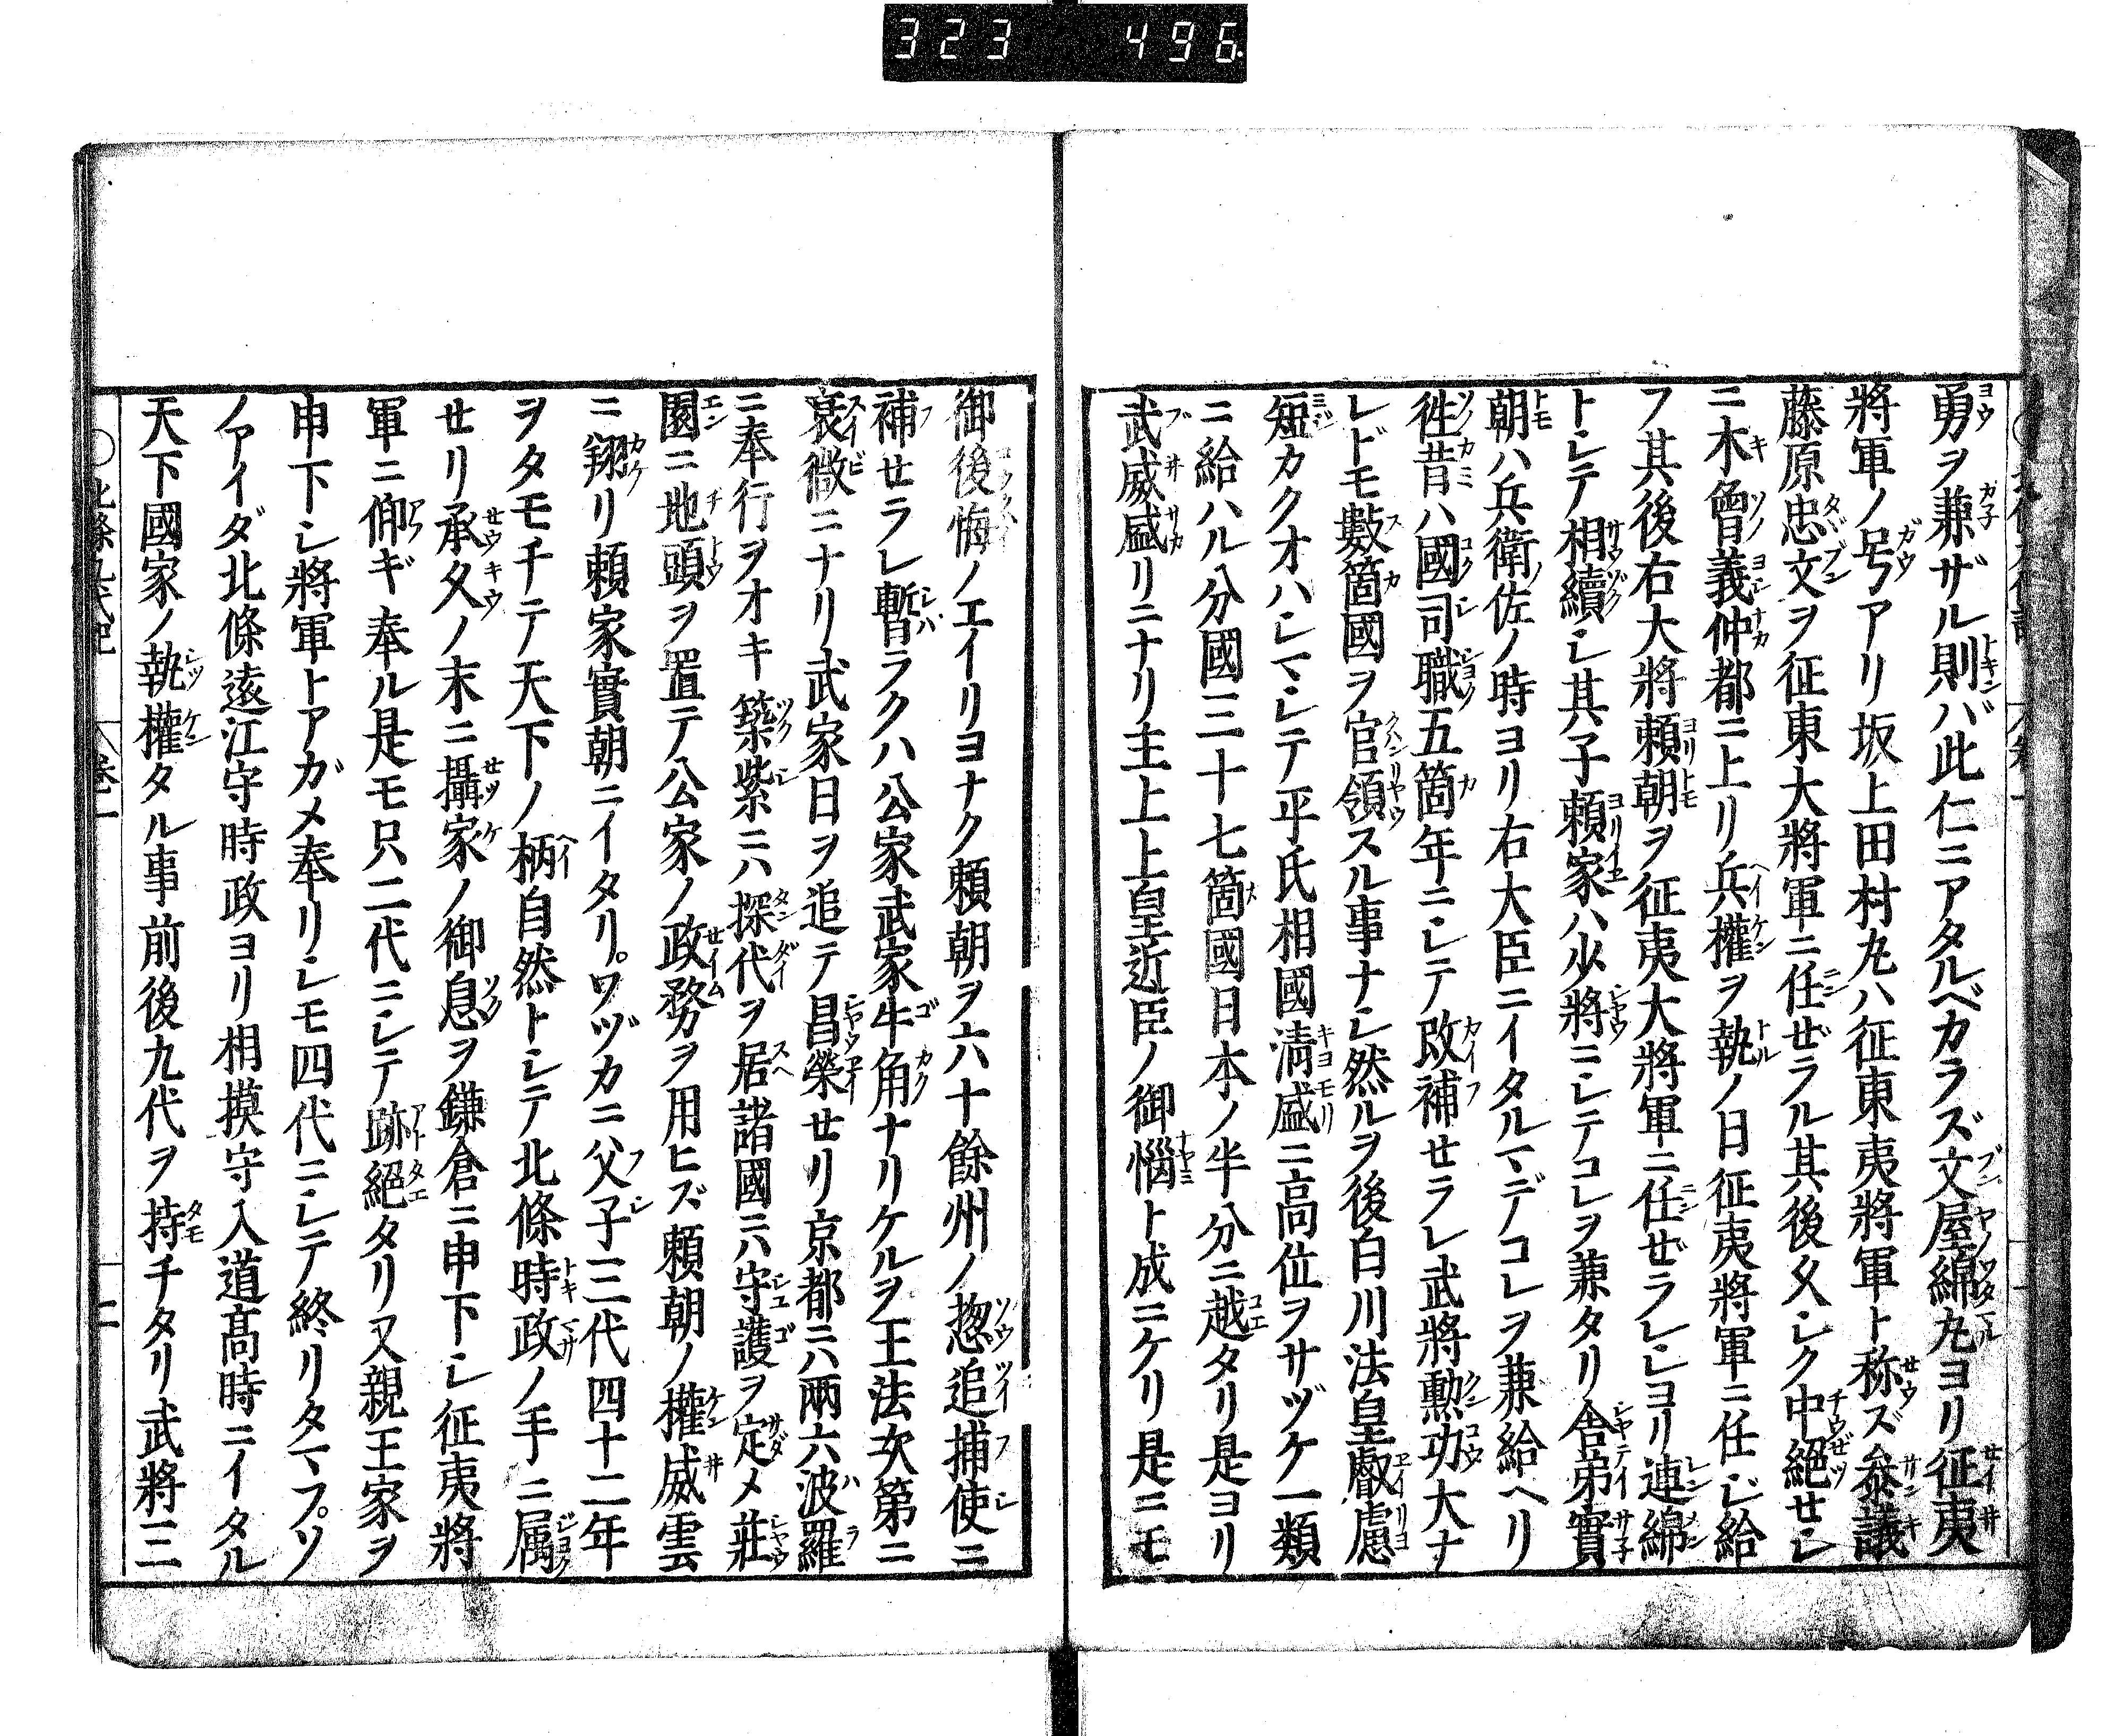 323 496
勇ヲ兼ザル則バ此仁ニアタルベカラズ文屋綿丸ヨリ征夷
將軍ノ号アリ坂上田村丸ハ征東夷將軍ト称ズ參議
藤原忠文ヲ征東大將軍ニ任ぜラル其後久シク中絕せシ
ニ木曾義仲都ニ上リ兵權ヲ執ノ日征夷將軍ニ任ジ給
フ其後右大將頼朝ヲ征夷大將軍ニ任ぜラレシヨリ連綿
トシテ相續シ其子頼家ハ少將ニシテコレヲ兼タリ舎弟實
朝ハ兵衛佐ノ時ヨリ右大臣ニイタルマデコレヲ兼給ヘリ
徃昔ハ國司職五箇年ニシテ改補せラレ武將勲功大ナ
レドモ數箇國ヲ官領スル事ナシ然ルヲ後白川法皇叡慮
短カクオハシマシテ平氏相國清盛ニ高位ヲサヅケ一類
ニ給ハル分國三十七箇國日本ノ半分ニ越タリ是ヨリ
武威盛リニナリ主上上皇近臣ノ御惱ト成ニケリ是ニモ
御後悔ノエイリヨナク頼朝ヲ六十餘州ノ惣追捕使ニ
補せラレ暫ラクハ公家武家牛角ナリケルヲ王法次第ニ
衰微ニナリ武家日ヲ追テ昌榮せリ京都ニハ兩六波羅
ニ奉行ヲオキ築紫ニハ探代ヲ居諸國ニハ守護ヲ定メ莊
園ニ地頭ヲ置テ公家ノ政務ヲ用ヒズ頼朝ノ權威雲
ニ翔リ頼家實朝ニイタリ。ワヅカニ父子三代四十二年
ヲタモチテ天下ノ柄自然トシテ北條時政ノ手ニ属
せリ承久ノ末ニ攝家ノ御息ヲ鎌倉ニ申下シ征夷將
軍ニ仰ギ奉ル是モ只二代ニシテ跡絕タリ又親王家ヲ
申下シ將軍トアガメ奉リシモ四代ニシテ終リタマフソ
ノアイダ北條遠江守時政ヨリ相摸守入道髙時ニイタル
天下國家ノ執權タル事前後九代ヲ持チタリ武將三
北條九代記 卷一 二